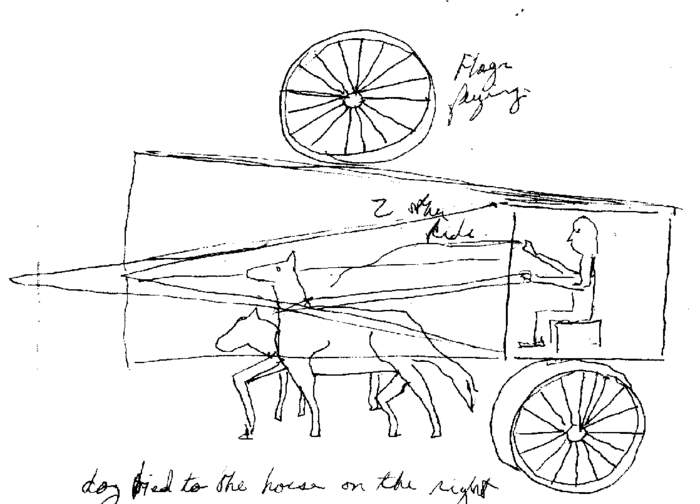 Flags
flying.
2 other
side.
dog tied to the horse on the right